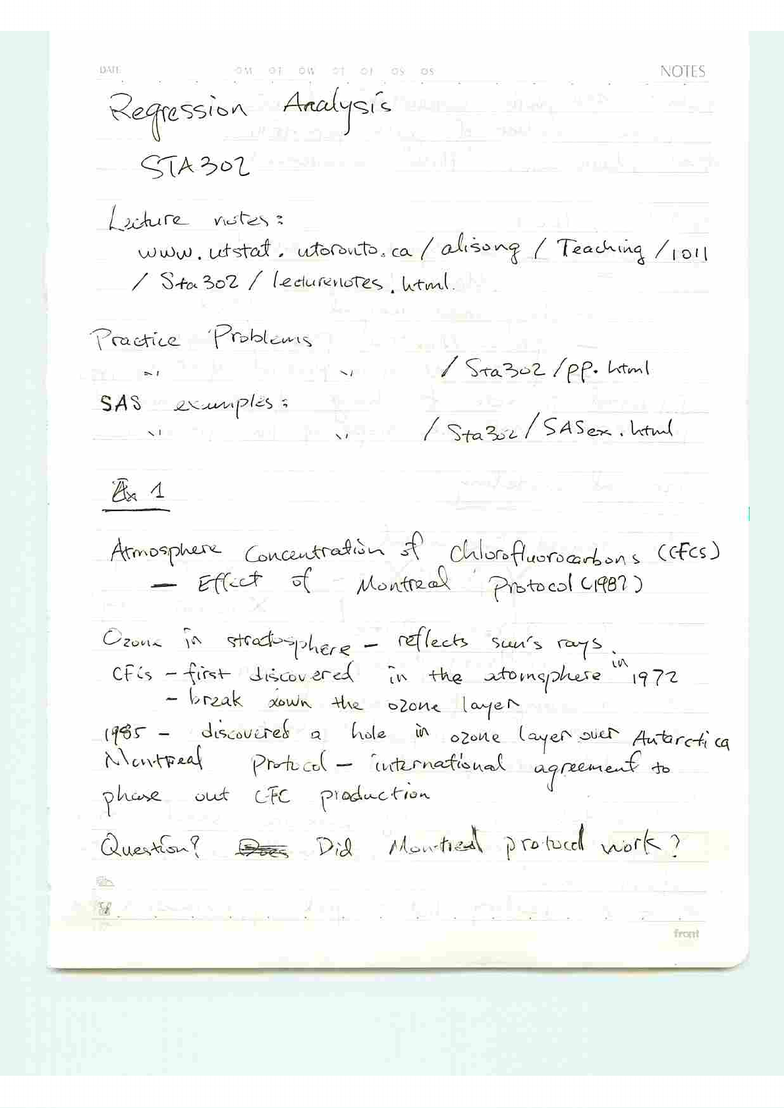 DATE
NOTES
Regression Analysis
STA302
Lecture notes:
www.utstat.utoronto.ca/alisong/Teaching/1011
/Sta302/lecturenotes.html.
Practice Problems
" " /Sta302/pp.html
SAS examples:
" " /Sta302/SASex.html
Ex 1
Atmosphere Concentration of Chlorofluorocarbons (CFCs)
— Effect of Montreal Protocol (1987)
Ozone in stratosphere — reflects sun's rays.
CFCs - first discovered in the atomsphere in 1972
- break down the ozone layer
1985 - discovered a hole in ozone layer over Antarctica
Montreal Protocol - international agreement to
phase out CFC production
Question? Did Montreal protocol work?
front